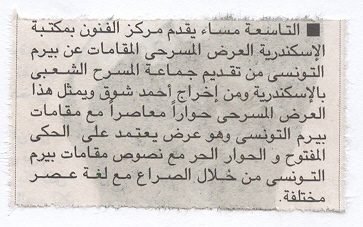 ■ التاسعة مساء يقدم مركز الفنون بمكتبة
الإسكندرية العرض المسرحى المقامات عن بيرم
التونسى من تقديم جماعة المسرح الشعبى
بالإسكندرية ومن إخراج أحمد شوق ويمثل هذا
العرض المسرحى حواراً معاصراً مع مقامات
بيرم التونسى وهو عرض يعتمد على الحكى
المفتوح و الحوار الحر مع نصوص مقامات بيرم
التونسى من خلال الصراع مع لغة عصر
مختلفة.